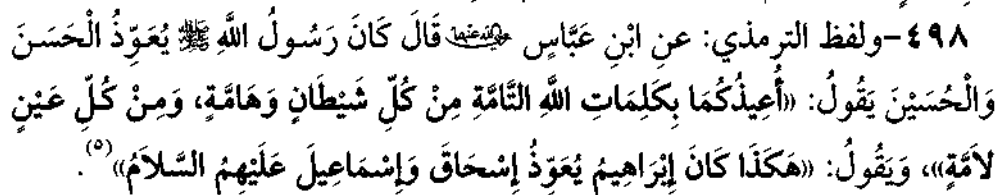 ٤٩٨-ولفظ الترمذي: عَنِ ابْنِ عَبَّاسٍ رضي الله عنهما قَالَ كَانَ رَسُولُ اللَّهِ ﷺ يُعَوِّذُ الْحَسَنَ
وَالْحُسَيْنَ يَقُولُ: «أُعِيذُكُمَا بِكَلِمَاتِ اللَّهِ التَّامَّةِ مِنْ كُلِّ شَيْطَانٍ وَهَامَّةٍ، وَمِنْ كُلِّ عَيْنٍ
لاَمَّةٍ»، وَيَقُولُ: «هَكَذَا كَانَ إِبْرَاهِيمُ يُعَوِّذُ إِسْحَاقَ وَإِسْمَاعِيلَ عَلَيْهِمُ السَّلاَمُ»(٥).